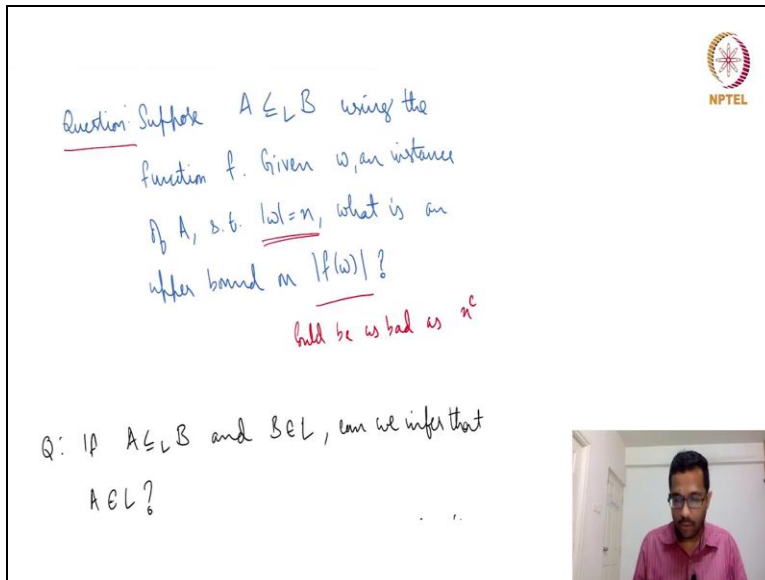 NPTEL
Question: Suppose A ≤L B using the
function f. Given w, an instance
of A, s.t. |w|=n, what is an
upper bound on |f(w)|?
Could be as bad as n^c
Q: If A ≤L B and B ∈ L, can we infer that
A ∈ L?